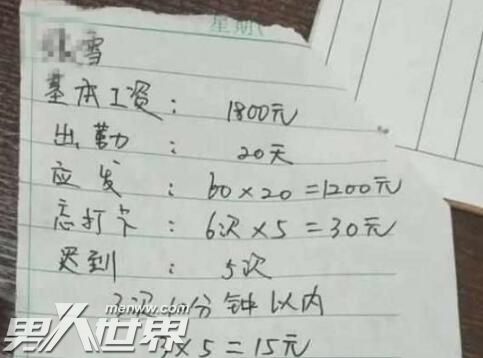 星期
雪
基本工资： 1800元
出勤： 20天
应发： 60×20=1200元
忘打卡： 6次×5=30元
迟到： 5次
3次十分钟以内
3×5=15元
menww.com
男人世界